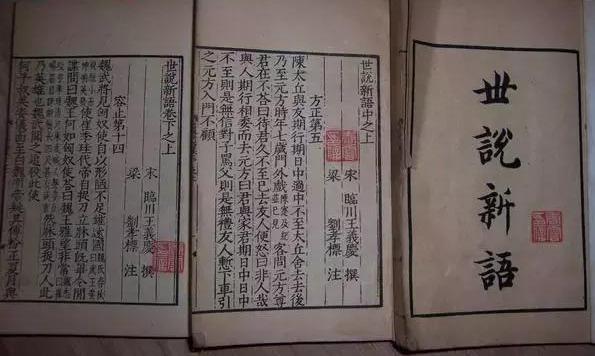 世說新語
世說新語中之上
宋 臨川王義慶 撰
梁 劉孝標 注
方正第五
陳太丘與友期行期日中過中不至太丘舍去去後
乃至元方時年七歲門外戲陳寔及紀並已見客問元方尊
君在不荅曰待君久不至已去友人便怒曰非人哉
與人期行相委而去元方曰君與家君期日中日中
不至則是無信對子罵父則是無禮友人慙下車引
之元方入門不顧
世說新語卷下之上
宋 臨川王義慶 撰
梁 劉孝標 注
容止第十四
魏武將見匈奴使自以形陋不足雄遠國魏氏春秋曰武王姿
貌短小而神明英發使崔季珪代帝自捉刀立牀頭既畢令間
諜問曰魏王何如匈奴使荅曰魏王雅望非常
然牀頭捉刀人此
乃英雄也魏武聞之追殺此使
何平叔美姿儀面至白魏明帝疑其傅粉正夏月與